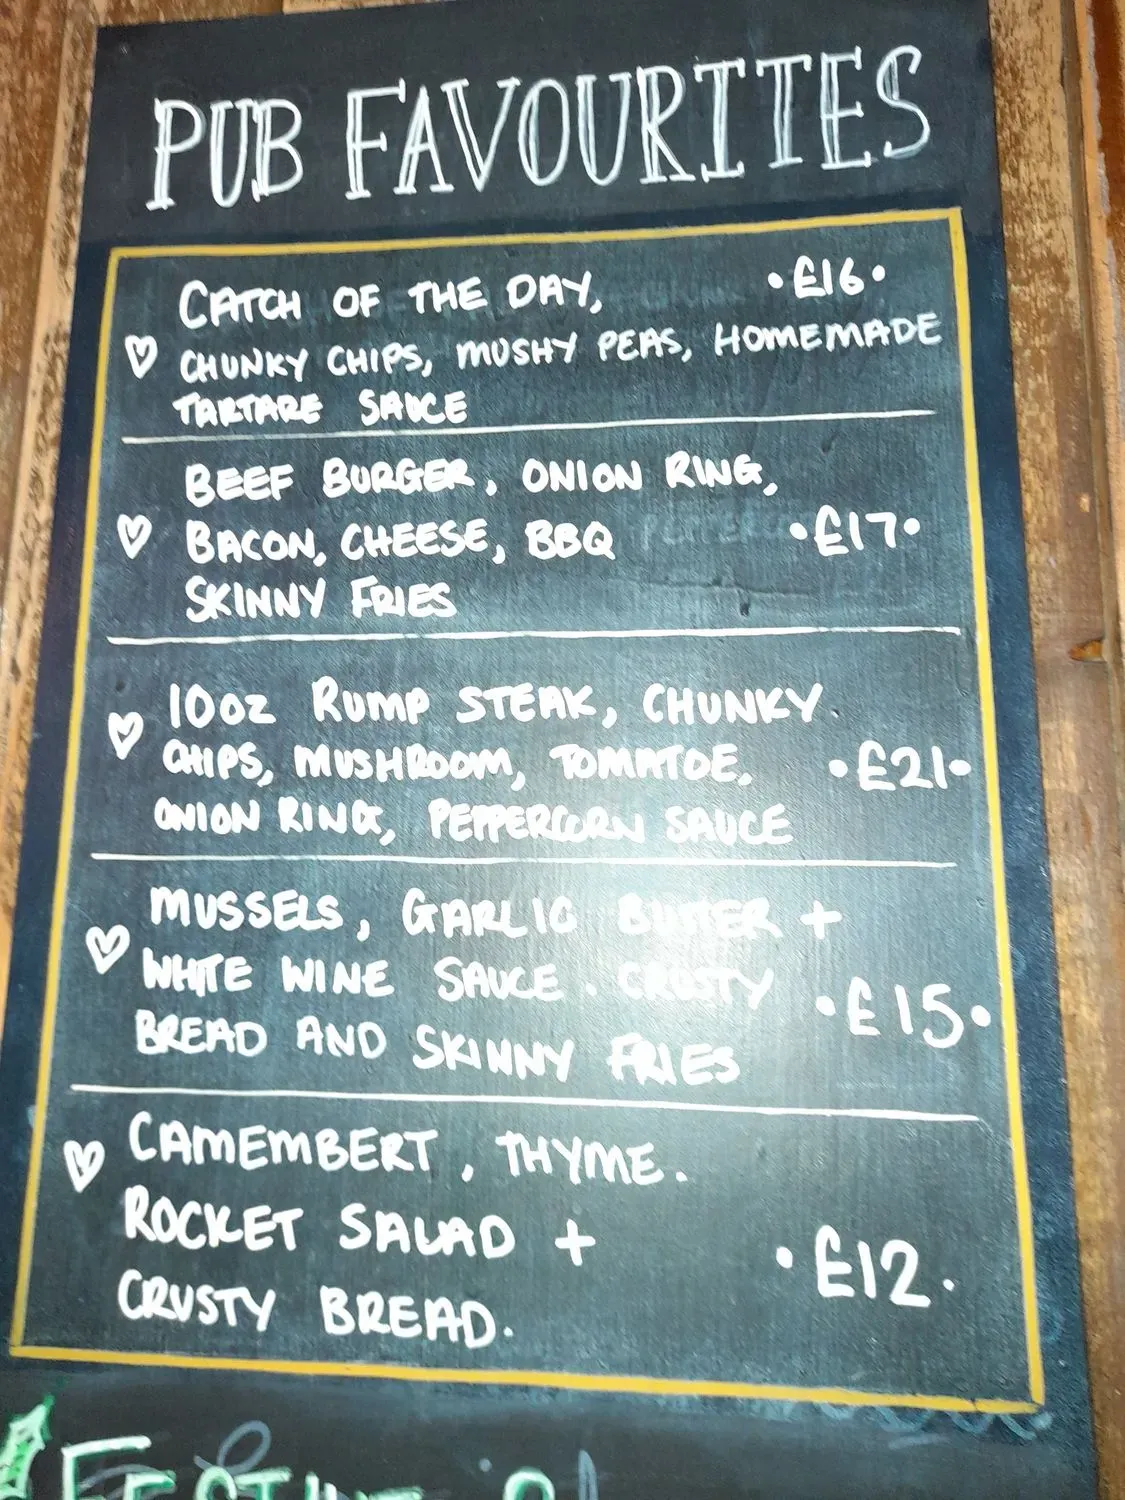 PUB FAVOURITES
CATCH OF THE DAY, •£16•
CHUNKY CHIPS, MUSHY PEAS, HOMEMADE
TARTARE SAUCE
BEEF BURGER, ONION RING,
BACON, CHEESE, BBQ •£17•
SKINNY FRIES
10oz RUMP STEAK, CHUNKY
CHIPS, MUSHROOM, TOMATOE, •£21•
ONION RING, PEPPERCORN SAUCE
MUSSELS, GARLIC BUTTER +
WHITE WINE SAUCE. CRUSTY •£15•
BREAD AND SKINNY FRIES
CAMEMBERT, THYME.
ROCKET SALAD + •£12.
CRUSTY BREAD.